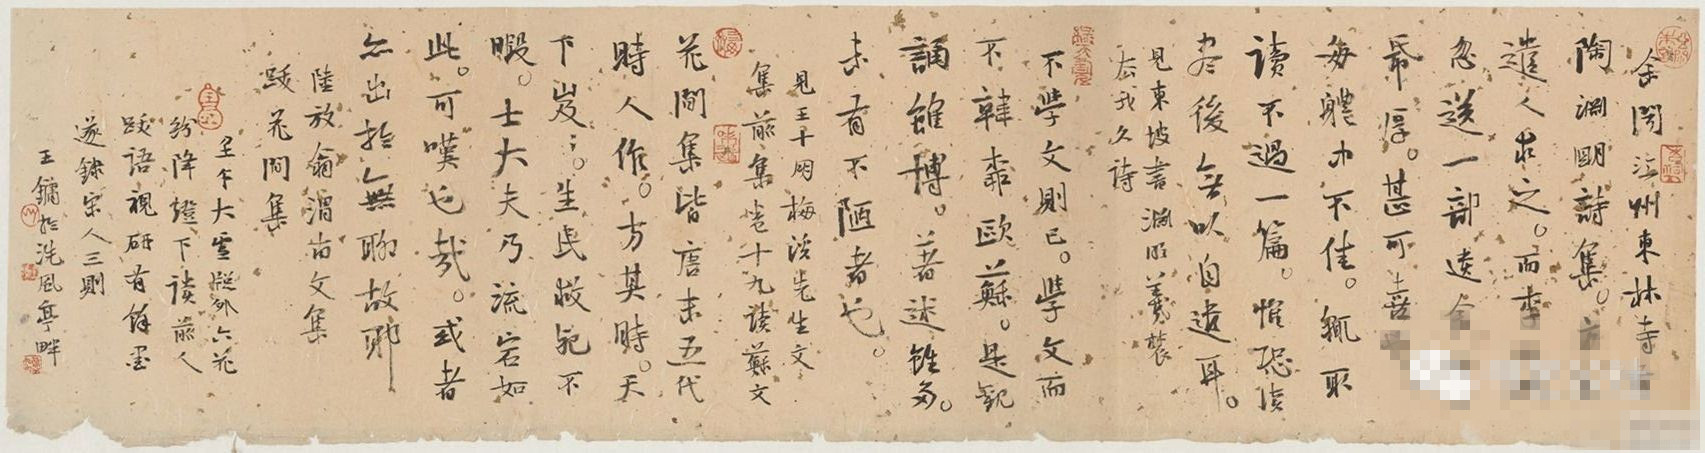 余闻江州東林寺有
陶渊明詩集。方
遣人求之。而李
忽送一部遗余
帋厚。甚可喜
每體中不佳。輒取
讀不過一篇。惟恐讀
尽後無以自遣耳。
見東坡書渊明羲農
去我久詩
不學文則已。學文而
不韓柔歐蘇。是觀
誦雖博。著述雖多。
未有不陋者也。
見王十朋梅溪先生文
集前集卷十九读蘇文
花間集皆唐末五代
時人作。方其時。天
下岌岌。生民救死不
暇。士大夫乃流宕如
此。可嘆也哉。或者
亦出於無聊故耶
陸放翁渭南文集
跋花間集
至午大雪牎外六花
紛降燈下读前人
跋語視研有餘墨
遂錄宋人三則
王鏞於洗風亭畔